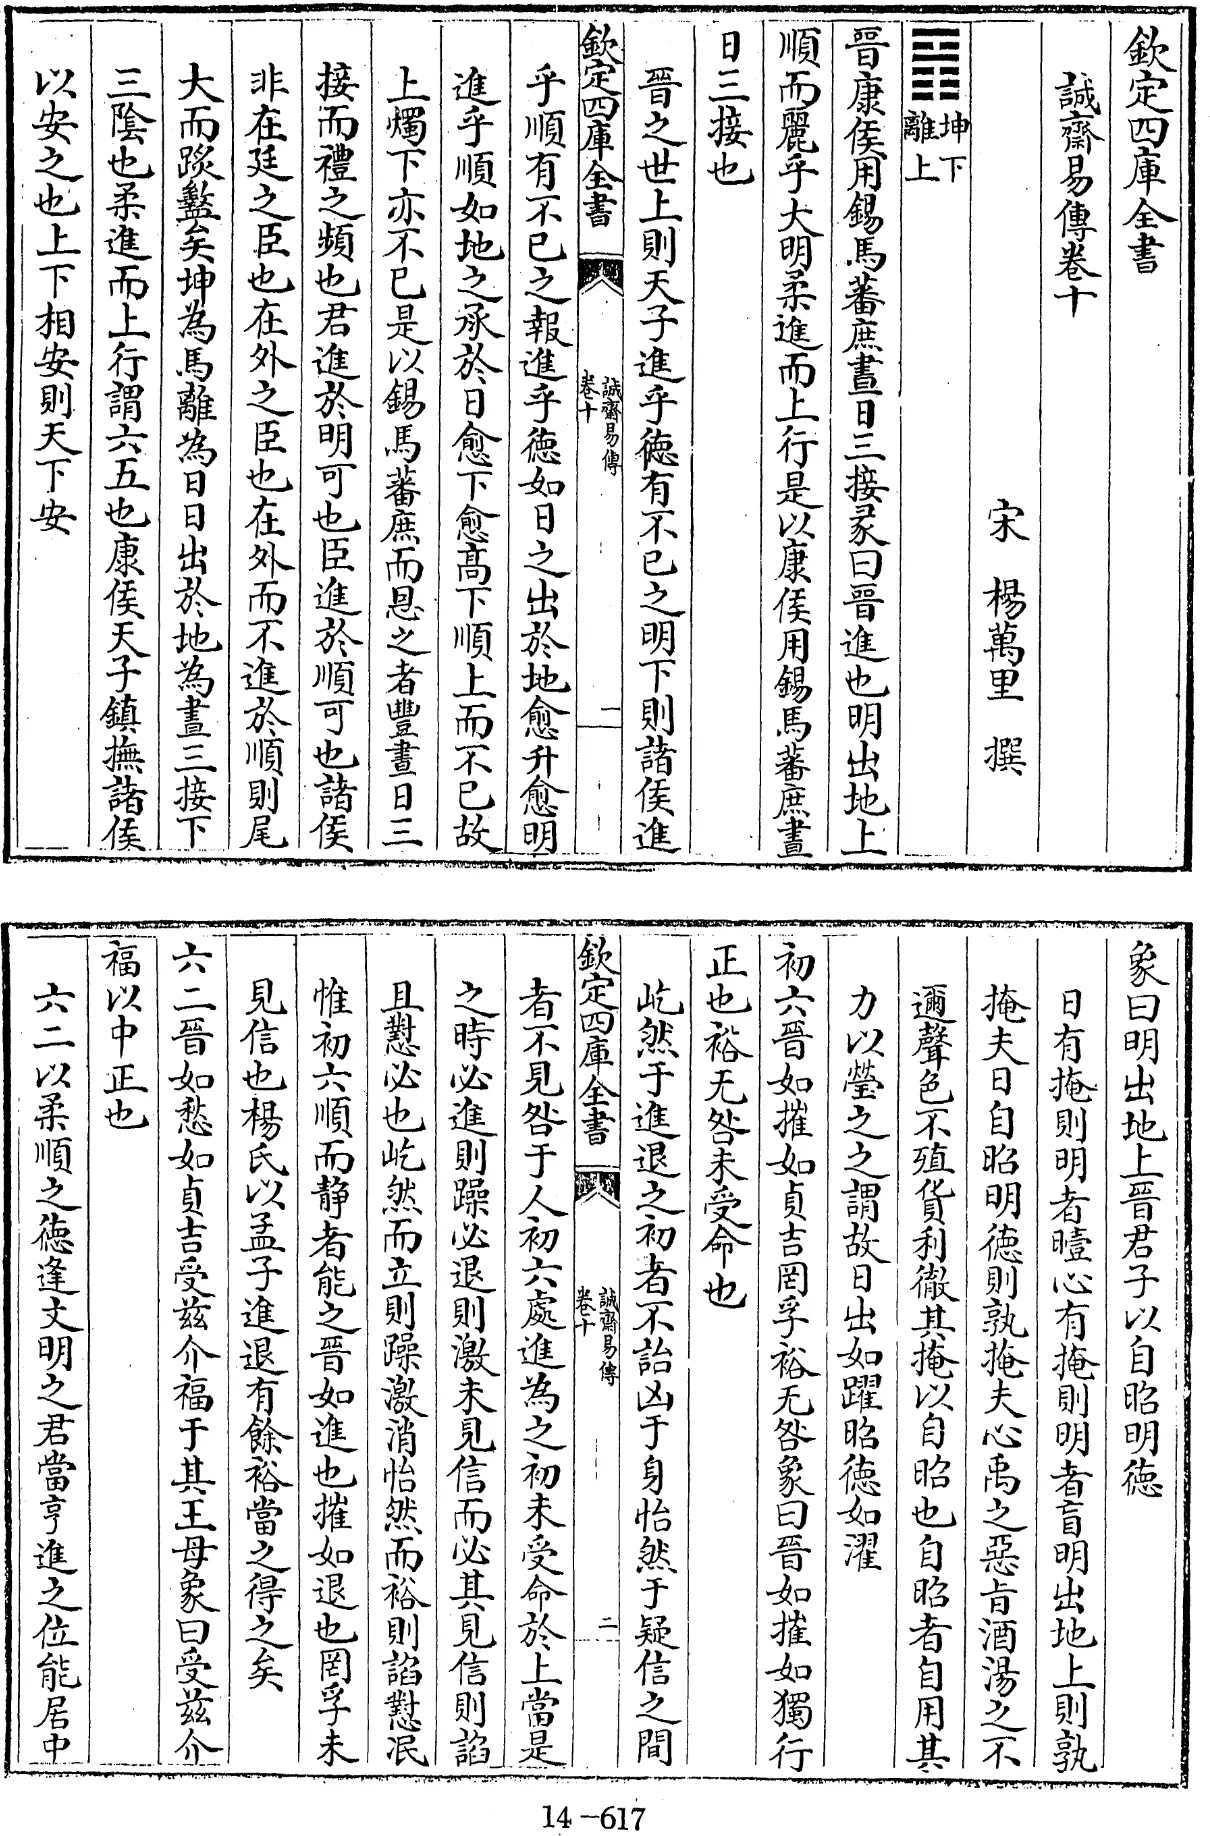 欽定四庫全書
誠齋易傳卷十
宋　楊萬里　撰
坤下
離上
晉康侯用錫馬蕃庶晝日三接彖曰晉進也明出地上
順而麗乎大明柔進而上行是以康侯用錫馬蕃庶晝
日三接也
晉之世上則天子進乎德有不已之明下則諸侯進
欽定四庫全書
誠齋易傳
卷十
一
乎順有不已之報進乎德如日之出於地愈升愈明
進乎順如地之承於日愈下愈高下順上而不已故
上燭下亦不已是以錫馬蕃庶而恩之者豐晝日三
接而禮之頻也君進於明可也臣進於順可也諸侯
非在廷之臣也在外之臣也在外而不進於順則尾
大而蹊盭矣坤為馬離為日日出於地為晝三接下
三陰也柔進而上行謂六五也康侯天子鎮撫諸侯
以安之也上下相安則天下安
象曰明出地上晉君子以自昭明德
日有掩則明者曀心有掩則明者盲明出地上則孰
掩夫日自昭明德則孰掩夫心禹之惡旨酒湯之不
邇聲色不殖貨利徹其掩以自昭也自昭者自用其
力以瑩之之謂故日出如躍昭德如濯
初六晉如摧如貞吉罔孚裕无咎象曰晉如摧如獨行
正也裕无咎未受命也
屹然于進退之初者不詒凶于身怡然于疑信之間
欽定四庫全書
誠齋易傳
卷十
二
者不見咎于人初六處進為之初未受命於上當是
之時必進則躁必退則激未見信而必其見信則諂
且懟必也屹然而立則躁激消怡然而裕則諂懟泯
惟初六順而静者能之晉如進也摧如退也罔孚未
見信也楊氏以孟子進退有餘裕當之得之矣
六二晉如愁如貞吉受兹介福于其王母象曰受兹介
福以中正也
六二以柔順之德逢文明之君當亨進之位能居中
14-617